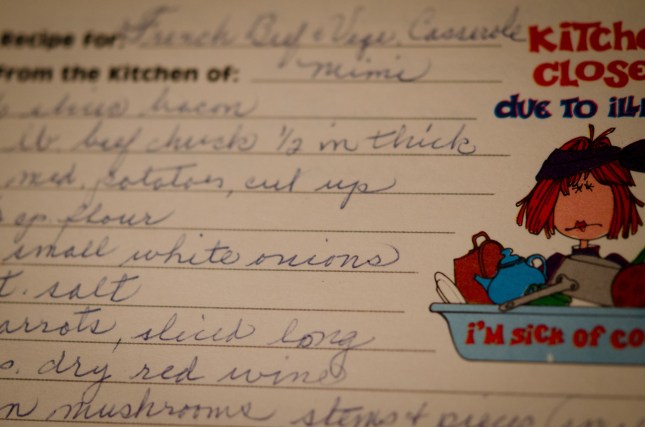 Recipe for: French Beef & Vege. Casserole
From the Kitchen of: Mimi
slices bacon
lb. beef chuck 1/2 in thick
med. potatoes, cut up
flour
small white onions
t. salt
arrots, sliced long
dry red wine
n mushrooms stems & pieces
KITCHE
CLOSE
due TO ILL
i'M SicK OF CO